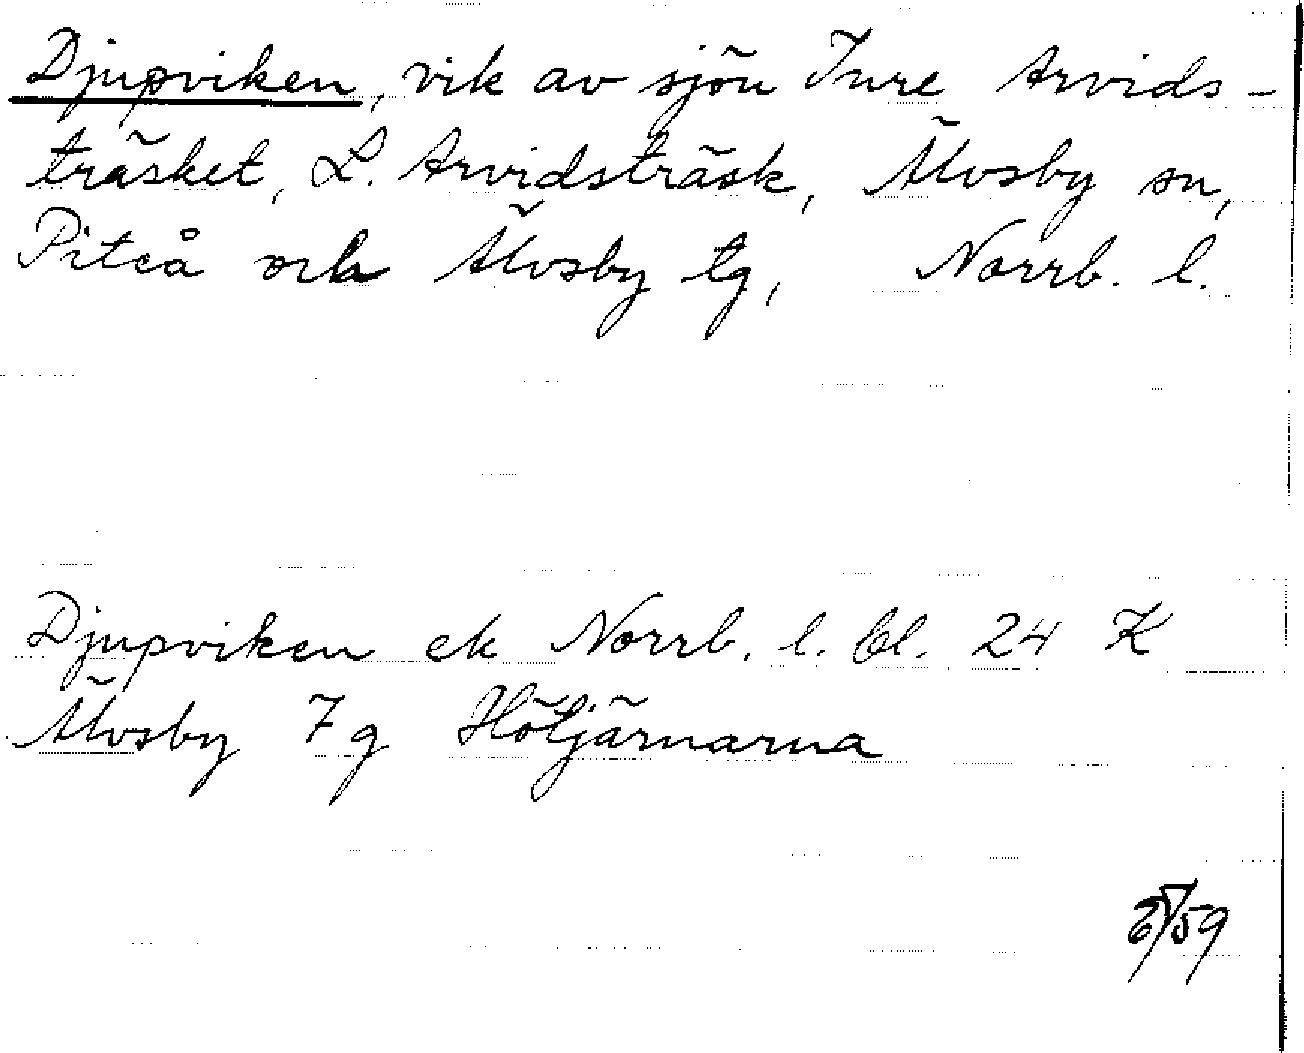 Djupviken, vik av sjön Inre Arvids-
träsket, L. Arvidsträsk, Älvsby sn,
Piteå och Älvsby tg, Norrb. l.
Djupviken ek Norrb. l. bl. 24 K
Älvsby 7g Hötjärnarna